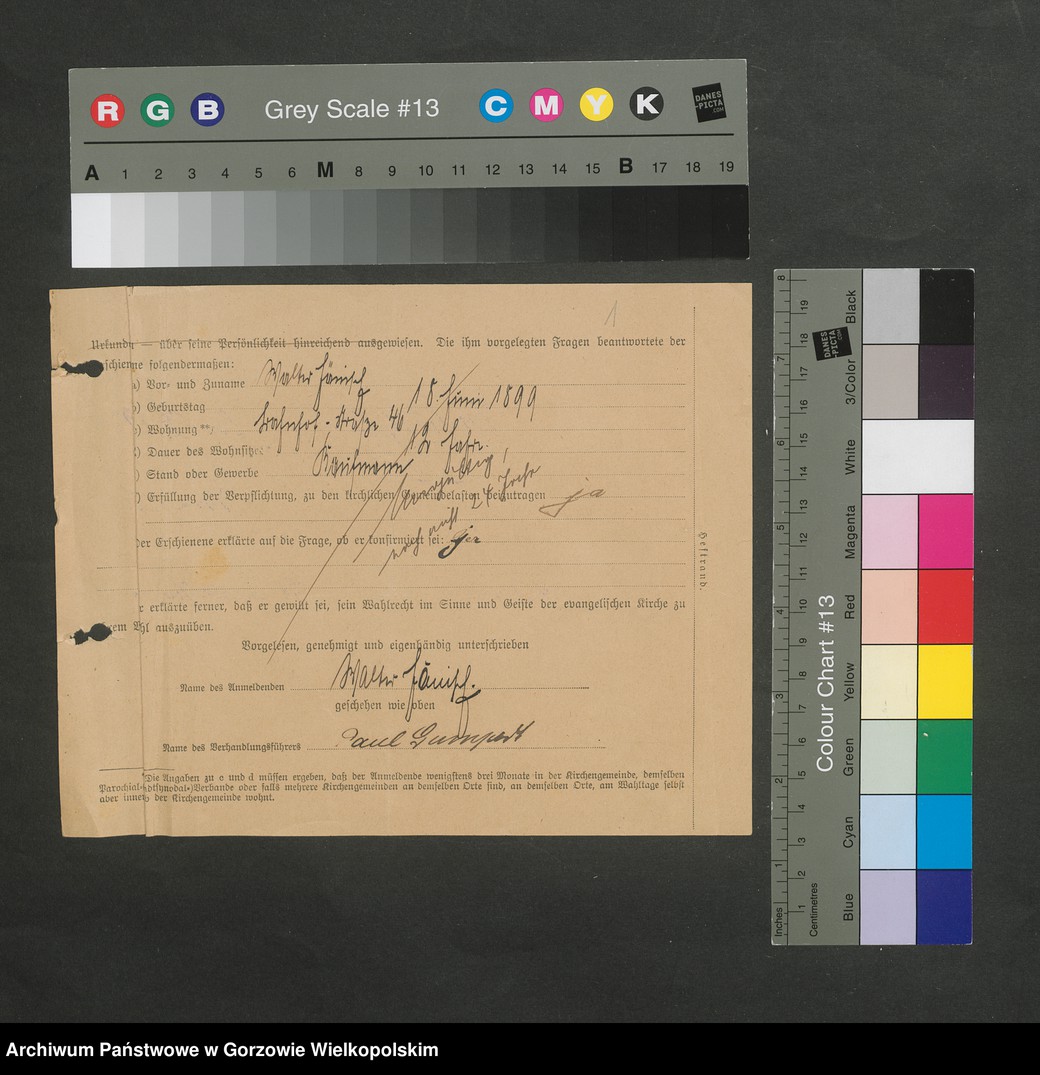 R G B Grey Scale #13 C M Y K DANES -PICTA .COM
A 1 2 3 4 5 6 M 8 9 10 11 12 13 14 15 B 17 18 19
1
Urkundy — über seine Persönlichkeit hinreichend ausgewiesen. Die ihm vorgelegten Fragen beantwortete der
schienene folgendermaßen:
) Vor- und Zuname Walter Jänisch
) Geburtstag 18. Juni 1899
) Wohnung **) Bahnhof-straße 46
) Dauer des Wohnsitzes 12 Jahr.
) Stand oder Gewerbe Kaufmann
) Erfüllung der Verpflichtung, zu den kirchlichen Gemeindelasten beizutragen ja
noch nicht 24 Jahre
der Erschienene erklärte auf die Frage, ob er konfirmiert sei: ja
r erklärte ferner, daß er gewillt sei, sein Wahlrecht im Sinne und Geiste der evangelischen Kirche zu
rem hl auszuüben.
Vorgelesen, genehmigt und eigenhändig unterschrieben
Name des Anmeldenden Walter Jänisch.
geschehen wie oben
Name des Verhandlungsführers Paul Gumpert
Die Angaben zu c und d müssen ergeben, daß der Anmeldende wenigstens drei Monate in der Kirchengemeinde, demselben
Parochial-(Stadtsynodal-)Verbande oder falls mehrere Kirchengemeinden an demselben Orte sind, an demselben Orte, am Wahltage selbst
aber inner der Kirchengemeinde wohnt.
Heftrand.
Colour Chart #13
DANES -PICTA .COM
Black
3/Color
White
Magenta
Red
Yellow
Green
Cyan
Blue
8 7 5 4 3 2 1 Inches
19 18 17 16 15 14 13 12 11 10 9 8 7 6 5 4 3 2 1 Centimetres
Archiwum Państwowe w Gorzowie Wielkopolskim